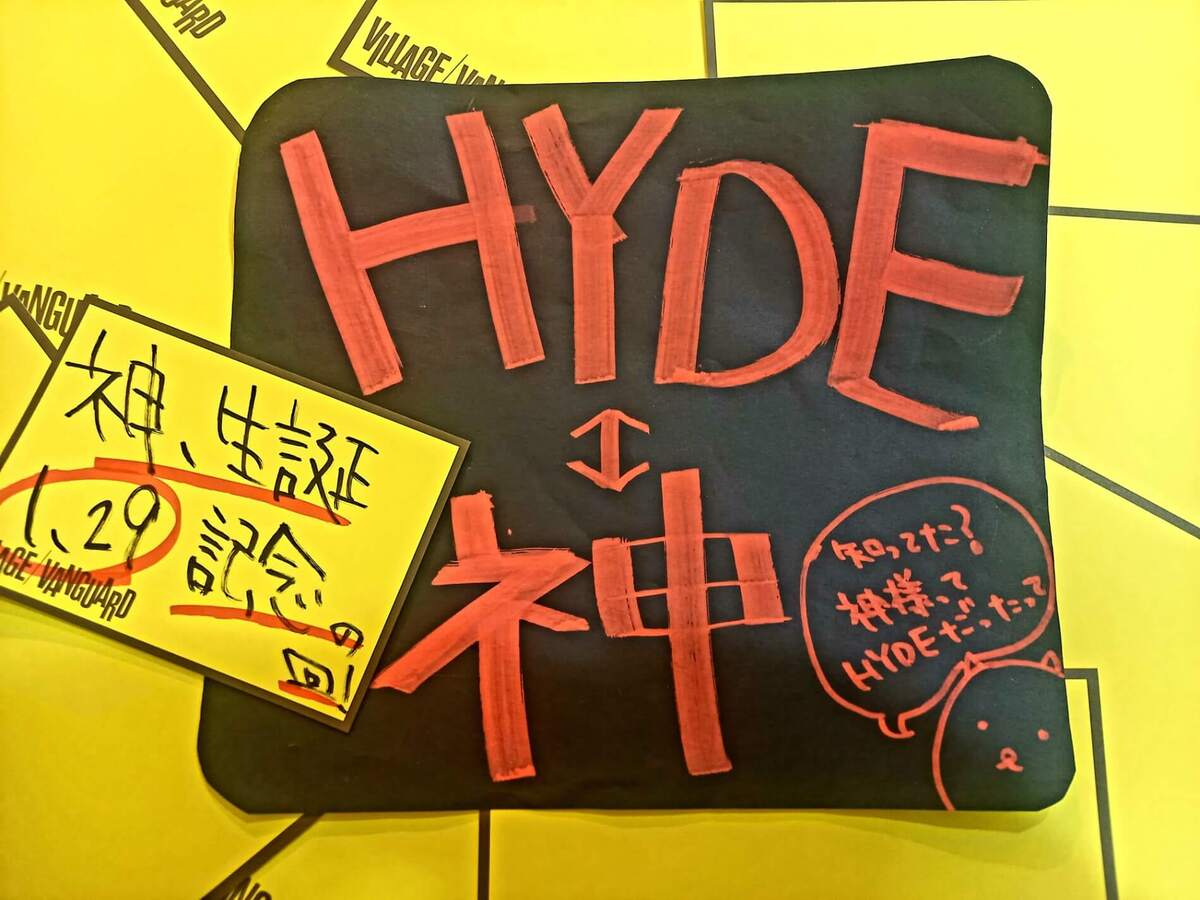 VILLAGE/VANGUARD
HYDE
↕
神
知ってた?
神様って
HYDEだったって
神、生誕
1、29 記念の
回
VILLAGE/VANGUARD